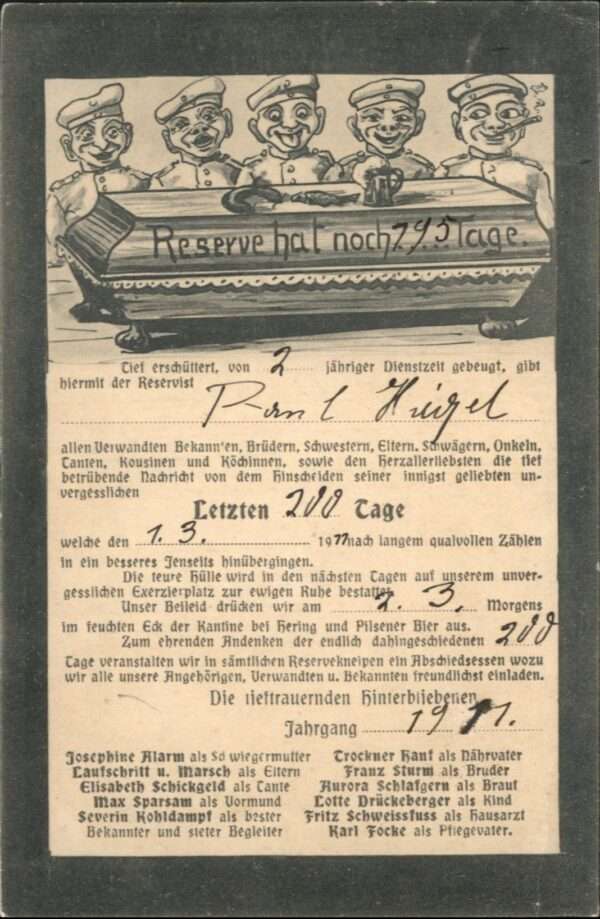 Reserve hat noch 295 Tage.
Tief erschüttert, von 2 jähriger Dienstzeit gebeugt, gibt
hiermit der Reservist
Paul Hügel
allen Verwandten Bekann'en, Brüdern, Schwestern, Eltern, Schwägern, Onkeln,
Tanten, Kousinen und Köchinnen, sowie den Herzallerliebsten die tief
betrübende Nachricht von dem Hinscheiden seiner innigst geliebten un-
vergesslichen
Letzten 200 Tage
welche den 1. 3. 1911 nach langem qualvollen Zählen
in ein besseres Jenseits hinübergingen.
Die teure Hülle wird in den nächsten Tagen auf unserem unver-
gesslichen Exerzierplatz zur ewigen Ruhe bestattet
Unser Beileid drücken wir am 2. 3. Morgens
im feuchten Eck der Kantine bei Hering und Pilsener Bier aus.
Zum ehrenden Andenken der endlich dahingeschiedenen 200
Tage veranstalten wir in sämtlichen Reservekneipen ein Abschiedsessen wozu
wir alle unsere Angehörigen, Verwandten u. Bekannten freundlichst einladen.
Die tieftrauernden Hinterbliebenen
Jahrgang 1911.
Josephine Alarm als Schwiegermutter
Laufschritt u. Marsch als Eltern
Elisabeth Schickgeld als Tante
Max Sparsam als Vormund
Severin Kohldampf als bester
Bekannter und steter Begleiter
Trockner Hanf als Nährvater
Franz Sturm als Bruder
Aurora Schlafgern als Braut
Lotte Drückeberger als Kind
Fritz Schweissfuss als Hausarzt
Karl Focke als Pflegevater.